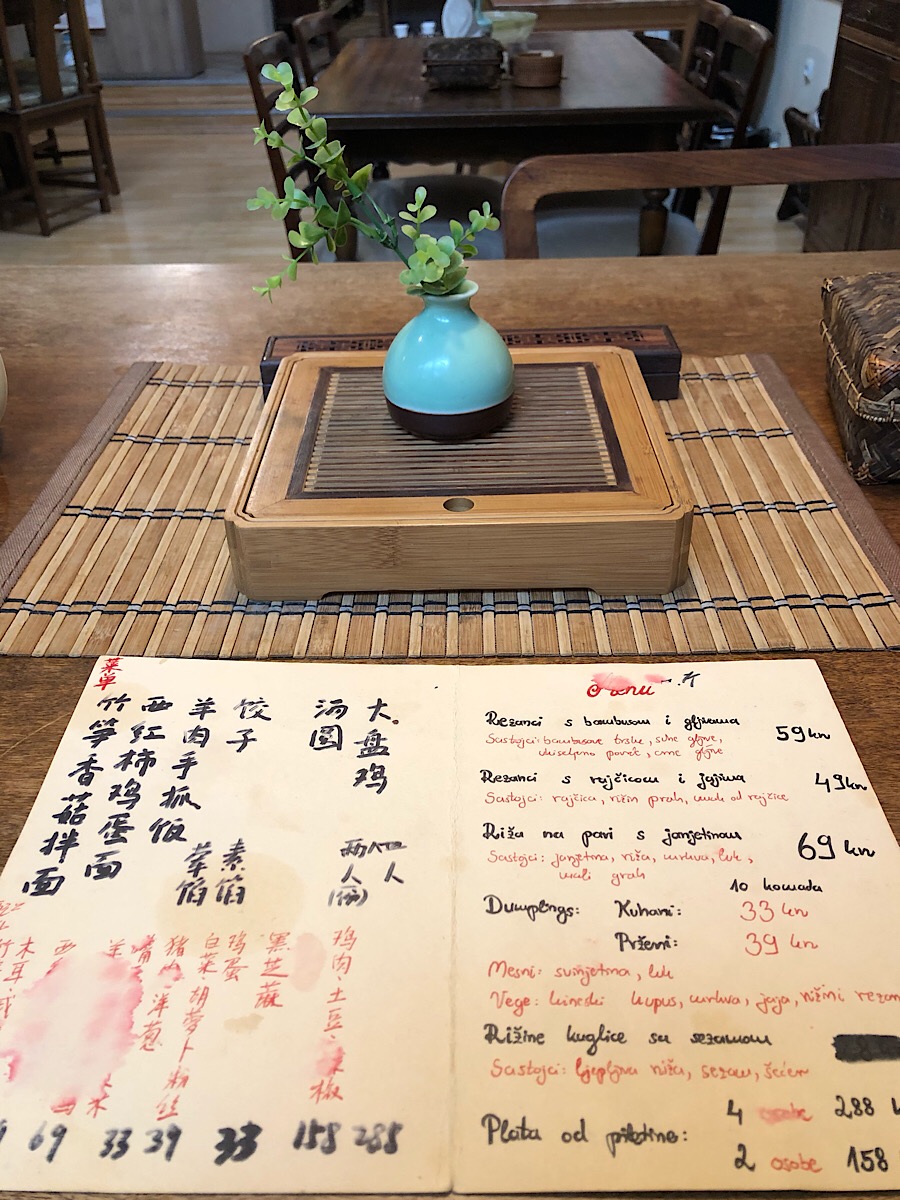 菜单
大盘鸡
四人
两人
(份)
鸡肉、土豆、辣椒
288
158
汤圆
黑芝麻
33
饺子
素馅
荤馅
鸡蛋
白菜、胡萝卜粉丝
猪肉、洋葱
39
33
羊肉手抓饭
69
西红柿鸡蛋面
竹笋香菇拌面
木耳
Menu
Rezanci s bambusom i gljivama 59 kn
Sastojci: bambusove trske, suhe gljive,
crne gljive
Rezanci s rajčicom i jajima 49 kn
Sastojci: rajčica, rižin prah, umak od rajčice
Riža na pari s janjetinom 69 kn
Sastojci: janjetina, riža, mrkva, luk,
mali grah
10 komada
Dumplings: Kuhani: 33 kn
Prženi: 39 kn
Mesni: svinjetina, luk
Vege: kineski kupus, mrkva, jaja, rižini rezan
Rižine kuglice sa sezamom
Sastojci: ljepljiva riža, sezam, šećer
4 osobe 288 k
Plata od piletine:
2 osobe 158